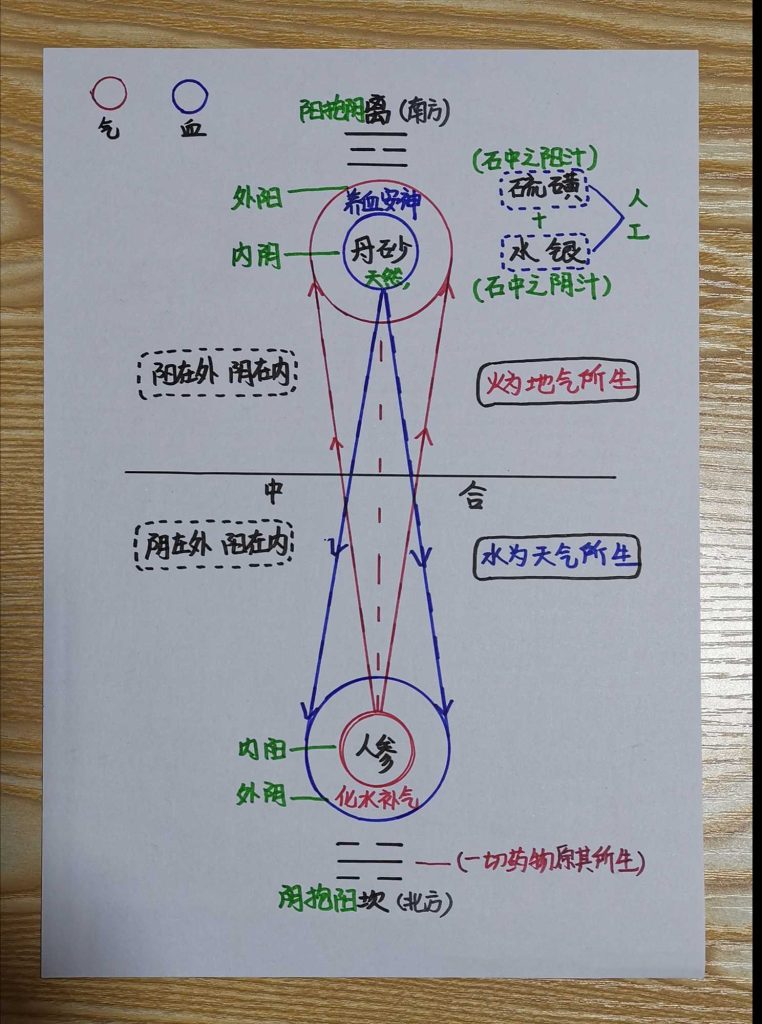 气 血
阳抱阴离(南方)
外阳
养血安神
内阴
丹砂
天然
(石中之阳汁)
硫磺
+
水银
人工
(石中之阴汁)
阳在外 阴在内
火为地气所生
中 合
阴在外 阳在内
水为天气所生
内阳
人参
外阴
化水补气
(一切药物原其所生)
阴抱阳坎(北方)